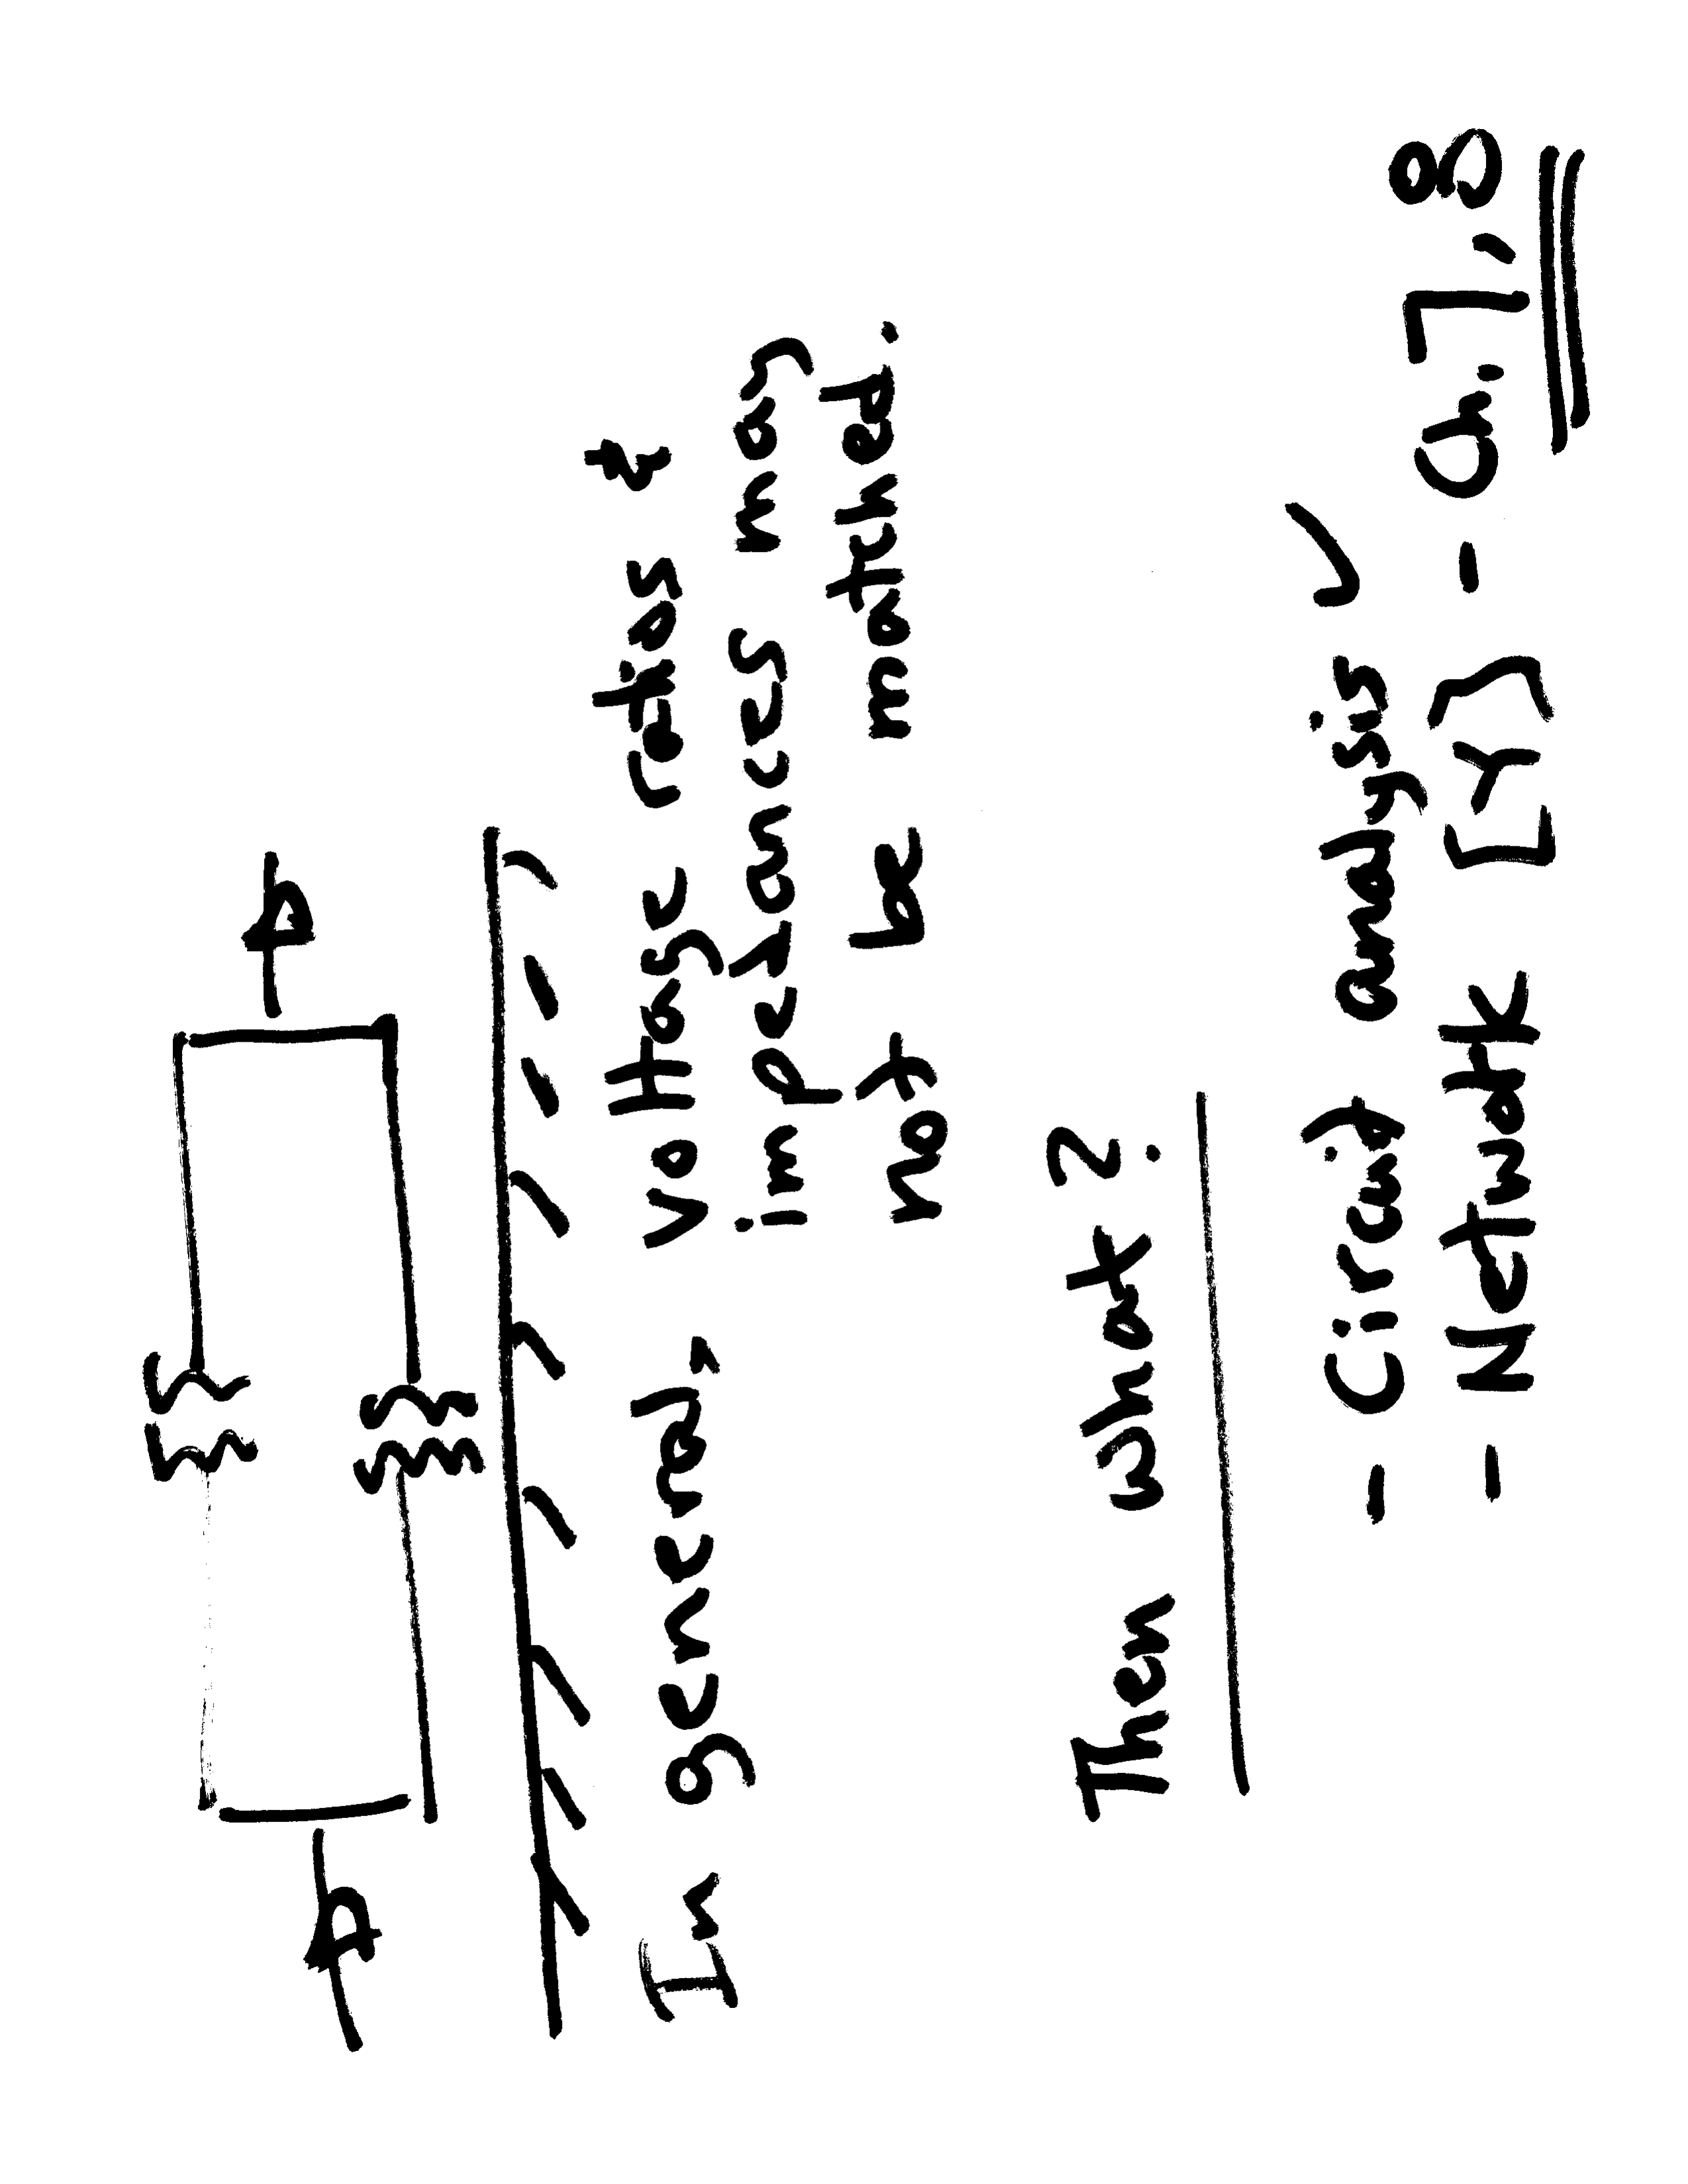 In general, voltage ratios &
impedances may
not be matched.
Then what?
- Circuit analysis ✓
- Network [Y] - Ch. 7, 8